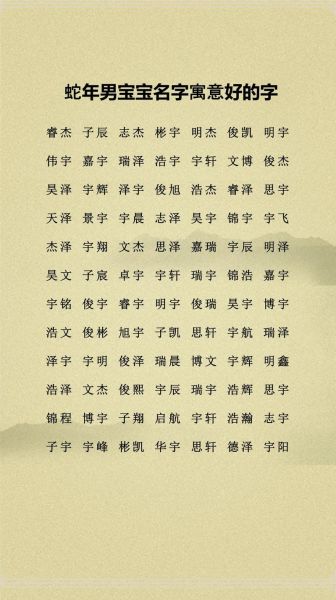 蛇年男宝宝名字寓意好的字
睿杰 子辰 志杰 彬宇 明杰 俊凯 明宇
伟宇 嘉宇 瑞泽 浩宇 宇轩 文博 俊杰
昊泽 宇辉 泽宇 俊旭 浩杰 睿泽 思宇
天泽 景宇 宇晨 志泽 昊宇 锦宇 宇飞
杰泽 宇翔 文杰 思泽 嘉瑞 宇辰 明泽
昊文 子宸 卓宇 宇轩 瑞宇 锦浩 嘉宇
宇铭 俊宇 睿宇 明宇 俊瑞 昊宇 博宇
浩文 俊彬 旭宇 子凯 思轩 宇航 瑞泽
泽宇 宇明 俊泽 瑞晨 博文 宇辉 明鑫
浩泽 文杰 俊熙 宇辰 瑞宇 浩辉 思宇
锦程 博宇 子翔 启航 宇轩 浩瀚 志宇
子宇 宇峰 彬凯 华宇 思轩 德泽 宇阳